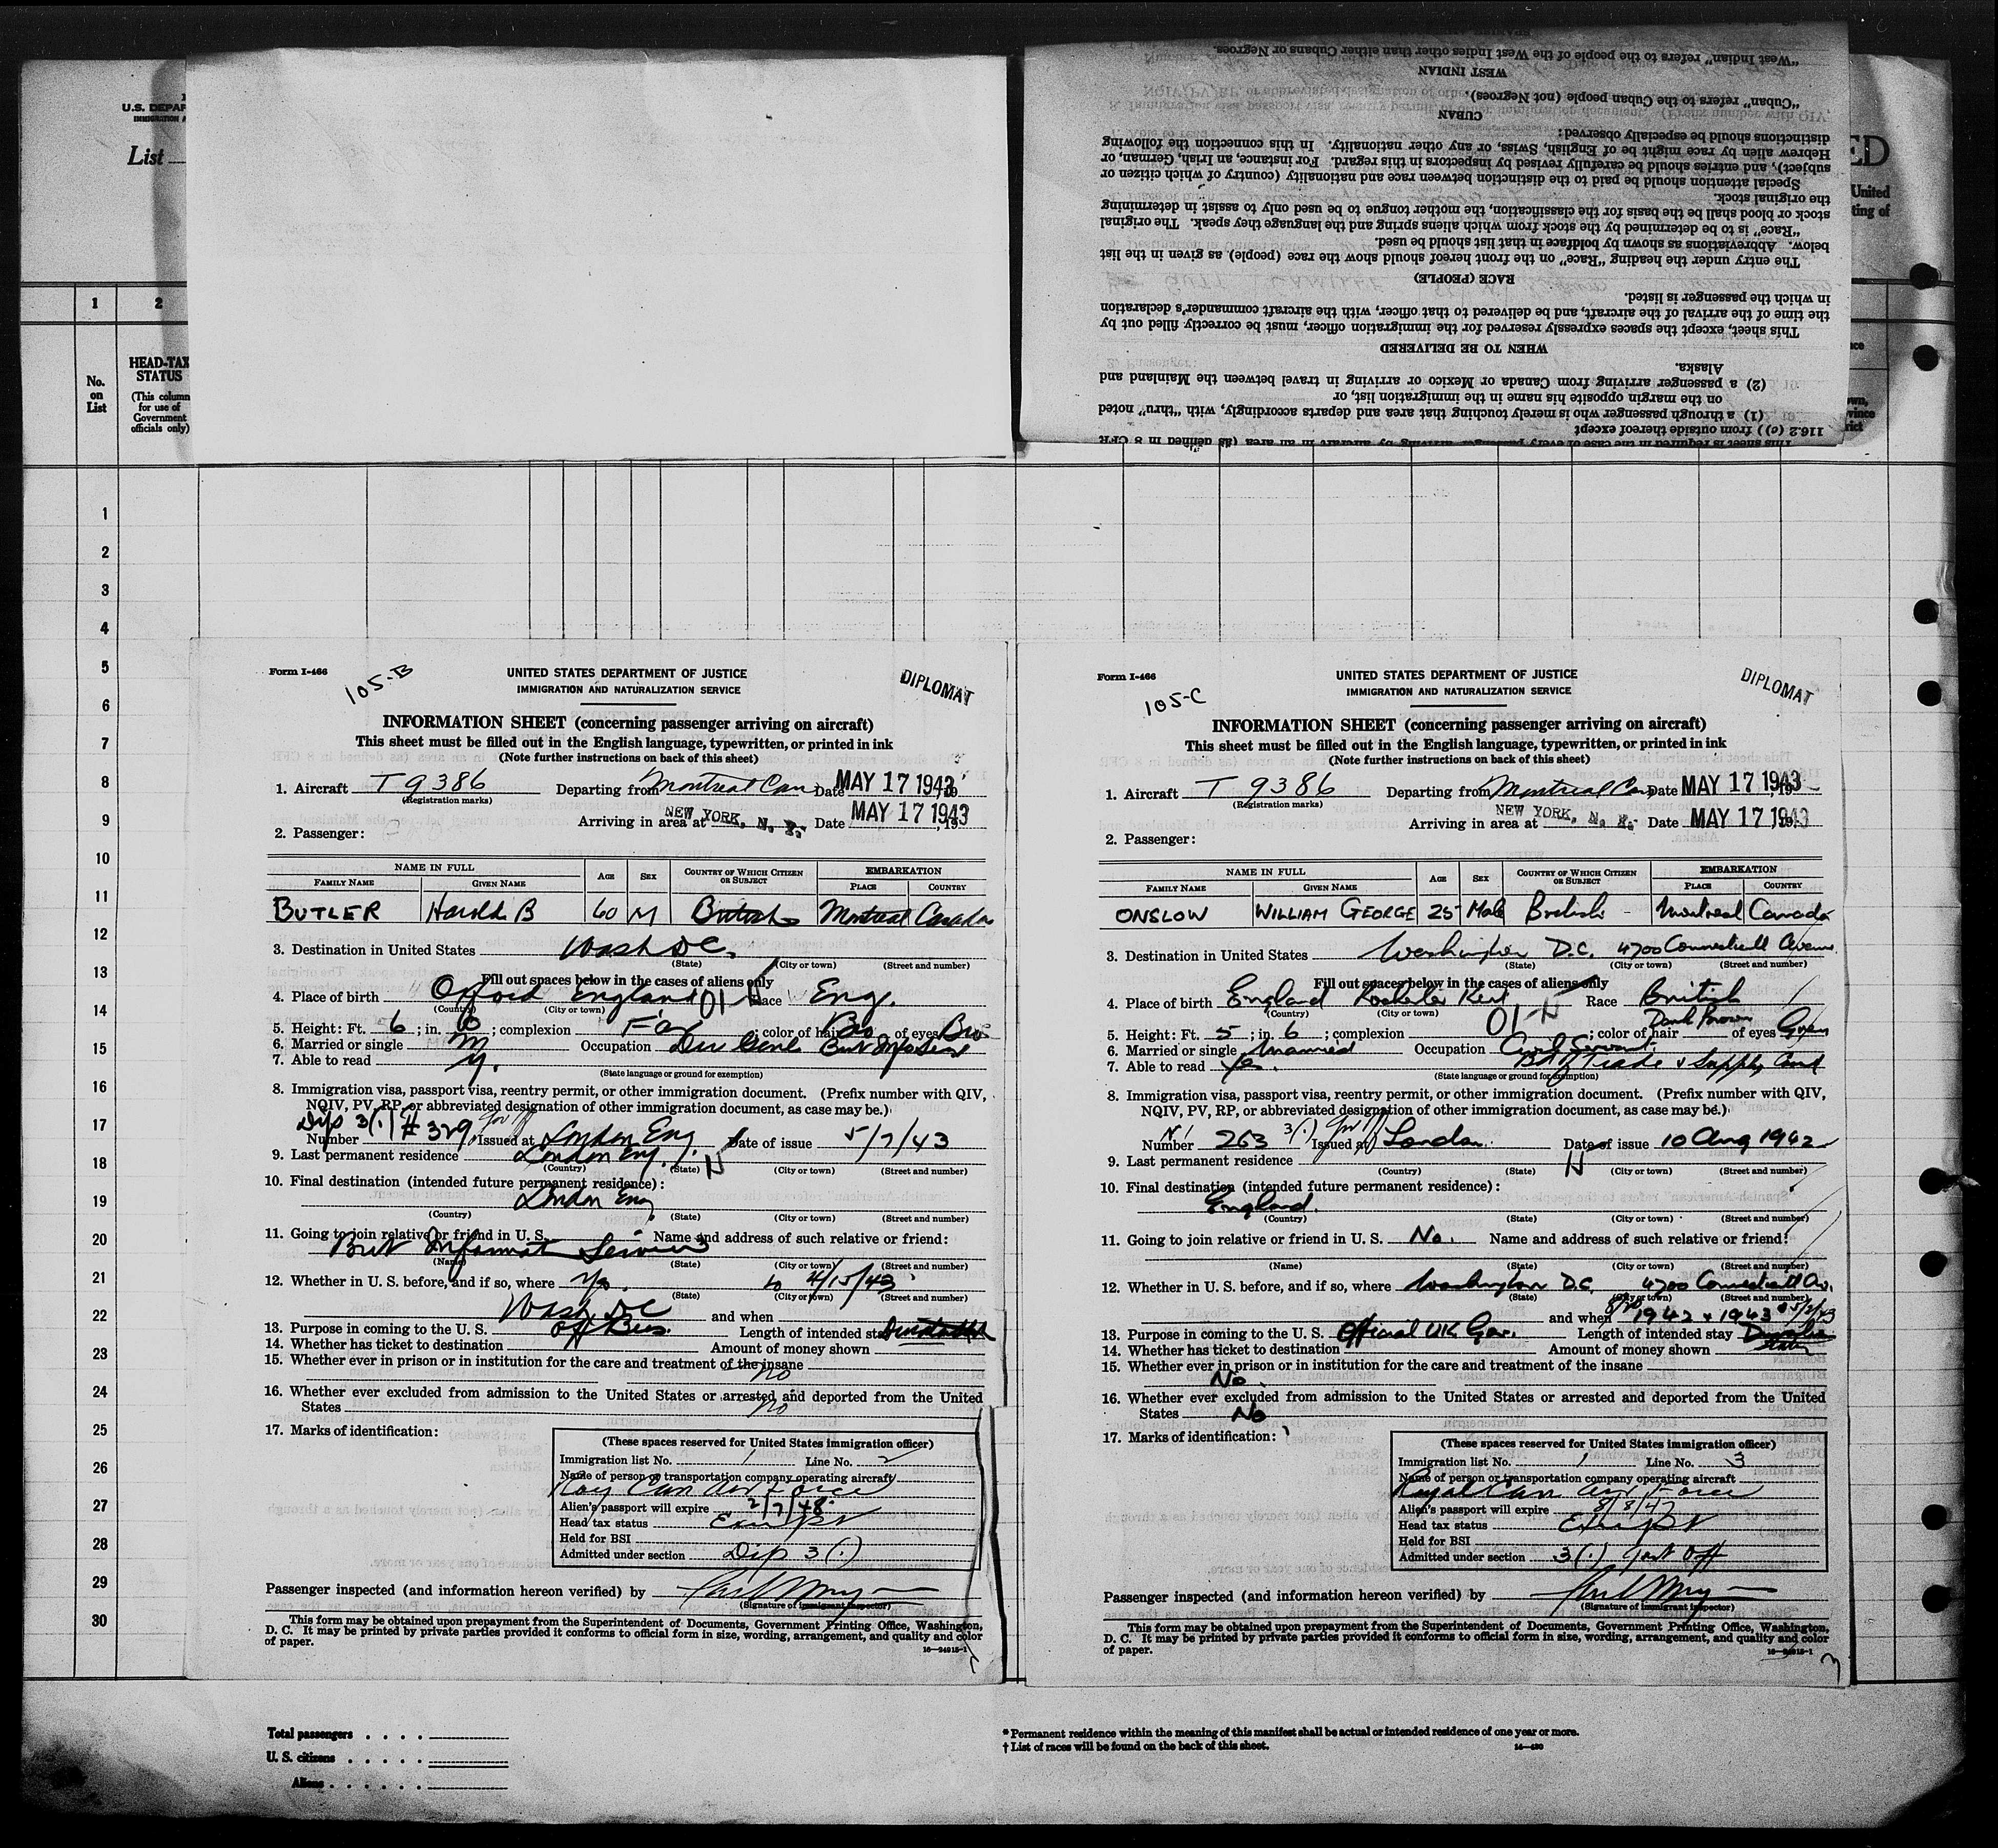 U.S. DEPAR
IMMIGRATION A
List
1
2
No.
on
List
HEAD-TAX
STATUS
(This column
for use of
Government
officials only)
ED
United
ting of
"West Indian" refers to the people of the West Indies other than either Cubans or Negroes.
WEST INDIAN
"Cuban" refers to the Cuban people (not Negroes).
CUBAN
distinctions should be especially observed:
Hebrew alien by race might be of English, Swiss, or any other nationality. In this connection the following
subject), and entries should be carefully revised by inspectors in this regard. For instance, an Irish, German, or
Special attention should be paid to the distinction between race and nationality (country of which citizen or
the original stock.
stock or blood shall be the basis for the classification, the mother tongue to be used only to assist in determining
"Race" is to be determined by the stock from which aliens spring and the language they speak. The original
below. Abbreviations as shown by boldface in that list should be used.
The entry under the heading "Race" on the front hereof should show the race (people) as given in the list
RACE (PEOPLE)
in which the passenger is listed.
the time of the arrival of the aircraft, and be delivered to that officer, with the aircraft commander's declaration
This sheet, except the spaces expressly reserved for the immigration officer, must be correctly filled out by
WHEN TO BE DELIVERED
Alaska.
(2) a passenger arriving from Canada or Mexico or arriving in travel between the Mainland and
on the margin opposite his name in the immigration list, or
(1) a through passenger who is merely touching that area and departs accordingly, with "thru" noted
116.2 (c)) from outside thereof except
This sheet is required in the case of every passenger arriving by aircraft in an area (as defined in 8 CFR
1
2
3
4
5
6
7
8
9
10
11
12
13
14
15
16
17
18
19
20
21
22
23
24
25
26
27
28
29
30
Form I-466
105-B
UNITED STATES DEPARTMENT OF JUSTICE
IMMIGRATION AND NATURALIZATION SERVICE
DIPLOMAT
INFORMATION SHEET (concerning passenger arriving on aircraft)
This sheet must be filled out in the English language, typewritten, or printed in ink
(Note further instructions on back of this sheet)
1. Aircraft T 9386 Departing from Montreal Can Date MAY 17 1943, 19
(Registration marks)
Arriving in area at NEW YORK, N. Y. Date MAY 17 1943, 19
2. Passenger:
NAME IN FULL AGE SEX COUNTRY OF WHICH CITIZEN OR SUBJECT EMBARKATION
FAMILY NAME GIVEN NAME PLACE COUNTRY
BUTLER Harold B 60 M British Montreal Canada
3. Destination in United States Wash DC.
(State) (City or town) (Street and number)
Fill out spaces below in the cases of aliens only
4. Place of birth Oxford England 01-N Race Eng.
(Country) (City or town)
5. Height: Ft. 6; in. 0; complexion Fair; color of hair Bro of eyes Bro
6. Married or single M Occupation Dir Genl Brit Info Serv
7. Able to read y.
(State language or ground for exemption)
8. Immigration visa, passport visa, reentry permit, or other immigration document. (Prefix number with QIV,
NQIV, PV, RP, or abbreviated designation of other immigration document, as case may be.)
Dip 3(1) # 329
Number Issued at London Eng Date of issue 5/7/43
9. Last permanent residence London Eng. N
(Country) (State) (City or town) (Street and number)
10. Final destination (intended future permanent residence):
London Eng
(Country) (State) (City or town) (Street and number)
11. Going to join relative or friend in U.S. Name and address of such relative or friend:
Brit Informat Services
(Name) (State) (City or town) (Street and number)
12. Whether in U.S. before, and if so, where to 4/15/43
(State) (City or town) (Street and number)
Wash DC and when
13. Purpose in coming to the U.S. Off Bus. Length of intended stay
14. Whether has ticket to destination Amount of money shown
15. Whether ever in prison or in institution for the care and treatment of the insane
no
16. Whether ever excluded from admission to the United States or arrested and deported from the United
States no
17. Marks of identification:
(These spaces reserved for United States immigration officer)
Immigration list No. 1 Line No. 2
Name of person or transportation company operating aircraft
Roy Can Air Force
Alien's passport will expire 2/7/48
Head tax status Exempt
Held for BSI
Admitted under section Dip 3(1)
Passenger inspected (and information hereon verified) by
(Signature of immigrant inspector)
This form may be obtained upon prepayment from the Superintendent of Documents, Government Printing Office, Washington,
D. C. It may be printed by private parties provided it conforms to official form in size, wording, arrangement, and quality and color
of paper.
16-24915-1
Form I-466
105-C
UNITED STATES DEPARTMENT OF JUSTICE
IMMIGRATION AND NATURALIZATION SERVICE
DIPLOMAT
INFORMATION SHEET (concerning passenger arriving on aircraft)
This sheet must be filled out in the English language, typewritten, or printed in ink
(Note further instructions on back of this sheet)
1. Aircraft T 9386 Departing from Montreal Can Date MAY 17 1943, 19
(Registration marks)
Arriving in area at NEW YORK, N. Y. Date MAY 17 1943, 19
2. Passenger:
NAME IN FULL AGE SEX COUNTRY OF WHICH CITIZEN OR SUBJECT EMBARKATION
FAMILY NAME GIVEN NAME PLACE COUNTRY
ONSLOW WILLIAM GEORGE 25 Male British Montreal Canada
3. Destination in United States Washington D.C. 4700 Connecticut Avenue
(State) (City or town) (Street and number)
Fill out spaces below in the cases of aliens only
4. Place of birth England Rochester Kent 01-N Race British
(Country) (City or town)
5. Height: Ft. 5; in. 6; complexion ; color of hair Dark Brown of eyes Green
6. Married or single Married Occupation Civil Servant
7. Able to read yes. Bd of Trade & Supply Cncl
(State language or ground for exemption)
8. Immigration visa, passport visa, reentry permit, or other immigration document. (Prefix number with QIV,
NQIV, PV, RP, or abbreviated designation of other immigration document, as case may be.)
Number 263 3(1) Issued at London Date of issue 10 Aug 1942
9. Last permanent residence N
(Country) (State) (City or town) (Street and number)
10. Final destination (intended future permanent residence):
England.
(Country) (State) (City or town) (Street and number)
11. Going to join relative or friend in U.S. No. Name and address of such relative or friend:
(Name) (State) (City or town) (Street and number)
12. Whether in U.S. before, and if so, where Washington D.C. 4700 Connecticut Av.
(City or town) (Street and number)
and when 1942 + 1943
13. Purpose in coming to the U.S. Official UK Gov. Length of intended stay
14. Whether has ticket to destination Amount of money shown
15. Whether ever in prison or in institution for the care and treatment of the insane
No.
16. Whether ever excluded from admission to the United States or arrested and deported from the United
States No
17. Marks of identification:
(These spaces reserved for United States immigration officer)
Immigration list No. 1 Line No. 3
Name of person or transportation company operating aircraft
Royal Can Air Force
Alien's passport will expire 8/8/47
Head tax status Exempt
Held for BSI
Admitted under section 3(1) Govt Off
Passenger inspected (and information hereon verified) by
(Signature of immigrant inspector)
This form may be obtained upon prepayment from the Superintendent of Documents, Government Printing Office, Washington,
D. C. It may be printed by private parties provided it conforms to official form in size, wording, arrangement, and quality and color
of paper.
16-24915-1
Total passengers
U. S. citizens
Aliens
* Permanent residence within the meaning of this manifest shall be actual or intended residence of one year or more.
† List of races will be found on the back of this sheet.